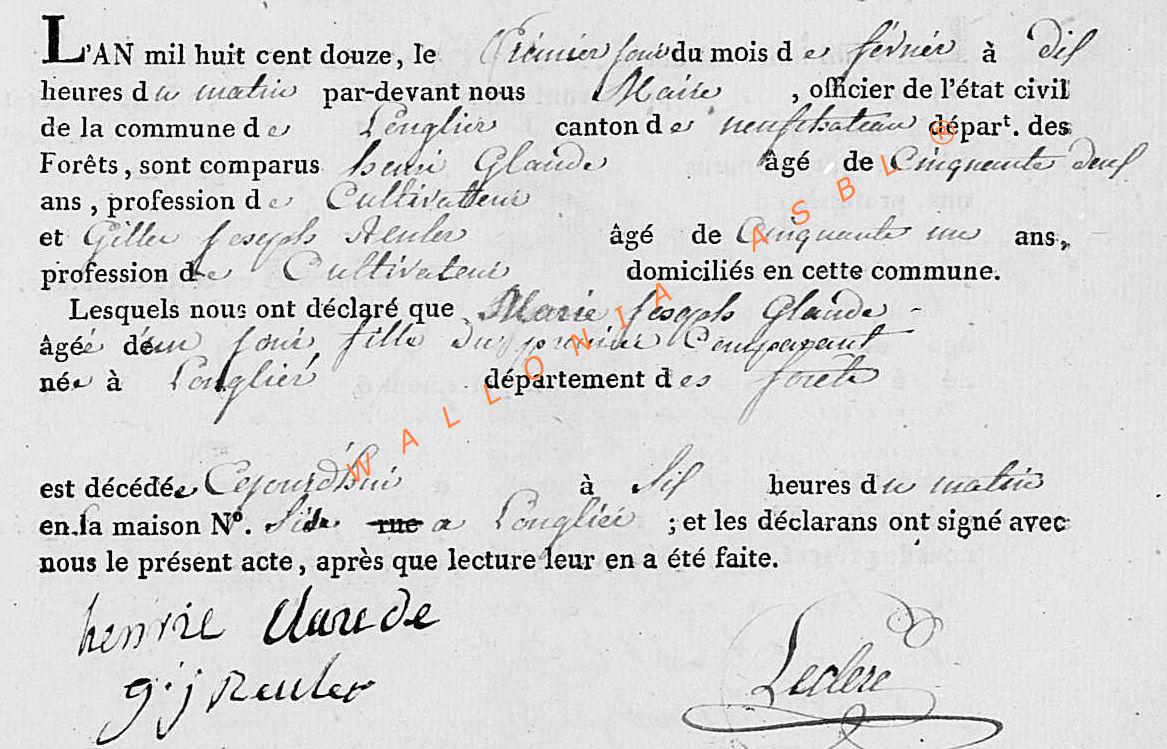 L'AN mil huit cent douze, le Premier jour du mois de février à dix
heures du matin par-devant nous Maire , officier de l'état civil
de la commune de Longlier canton de neufchateau départ. des
Forêts, sont comparus henri Glaude âgé de Cinquante deux
ans, profession de Cultivatteur
et Gille joseph Reuler âgé de Cinquante un ans,
profession de Cultivateur domiciliés en cette commune.
Lesquels nous ont déclaré que Marie joseph Glaude -
âgée d'un jour fille du premier Comparant
née à Longlier département des forêts
est décédée Cejourd'hui à Six heures du matin
en sa maison N°. rue a Longlier ; et les déclarans ont signé avec
nous le présent acte, après que lecture leur en a été faite.
henrie Claude
g.j Reuler
Leclere
WALLONIA ASBL ®